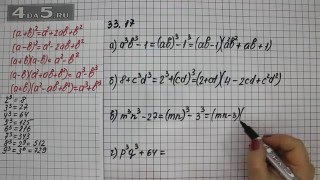 4да5.ru
33.17
(a+b)²=a²+2ab+b²
(a-b)²=a²-2ab+b²
(a+b)(a-b)=a²-b²
(a-b)(a²+ab+b²)=a³-b³
(a+b)(a²-ab+b²)=a³+b³
2³=8
3³=27
4³=64
5³=125
6³=216
7³=343
8³=512
9³=729
а) a³b³-1=(ab)³-1³=(ab-1)(a²b²+ab+1)
б) 8+c³d³=2³+(cd)³=(2+cd)(4-2cd+c²d²)
в) m³n³-27=(mn)³-3³=(mn-3)(
г) p³q³+64=